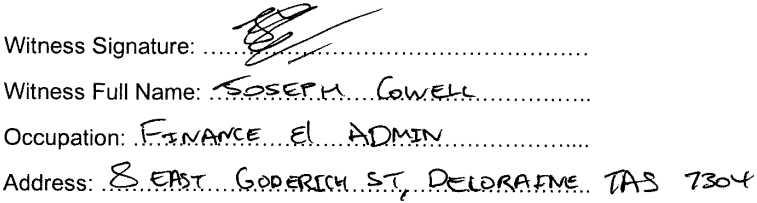 Witness Signature:
Witness Full Name: JOSEPH COWELL
Occupation: FINANCE & ADMIN
Address: 8 EAST GODERICH ST, DELORAINE TAS 7304